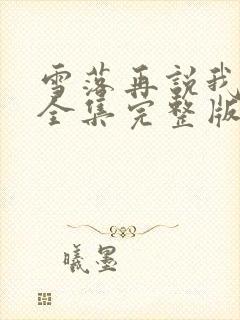 雪落再說我
全集完整版
曦墨